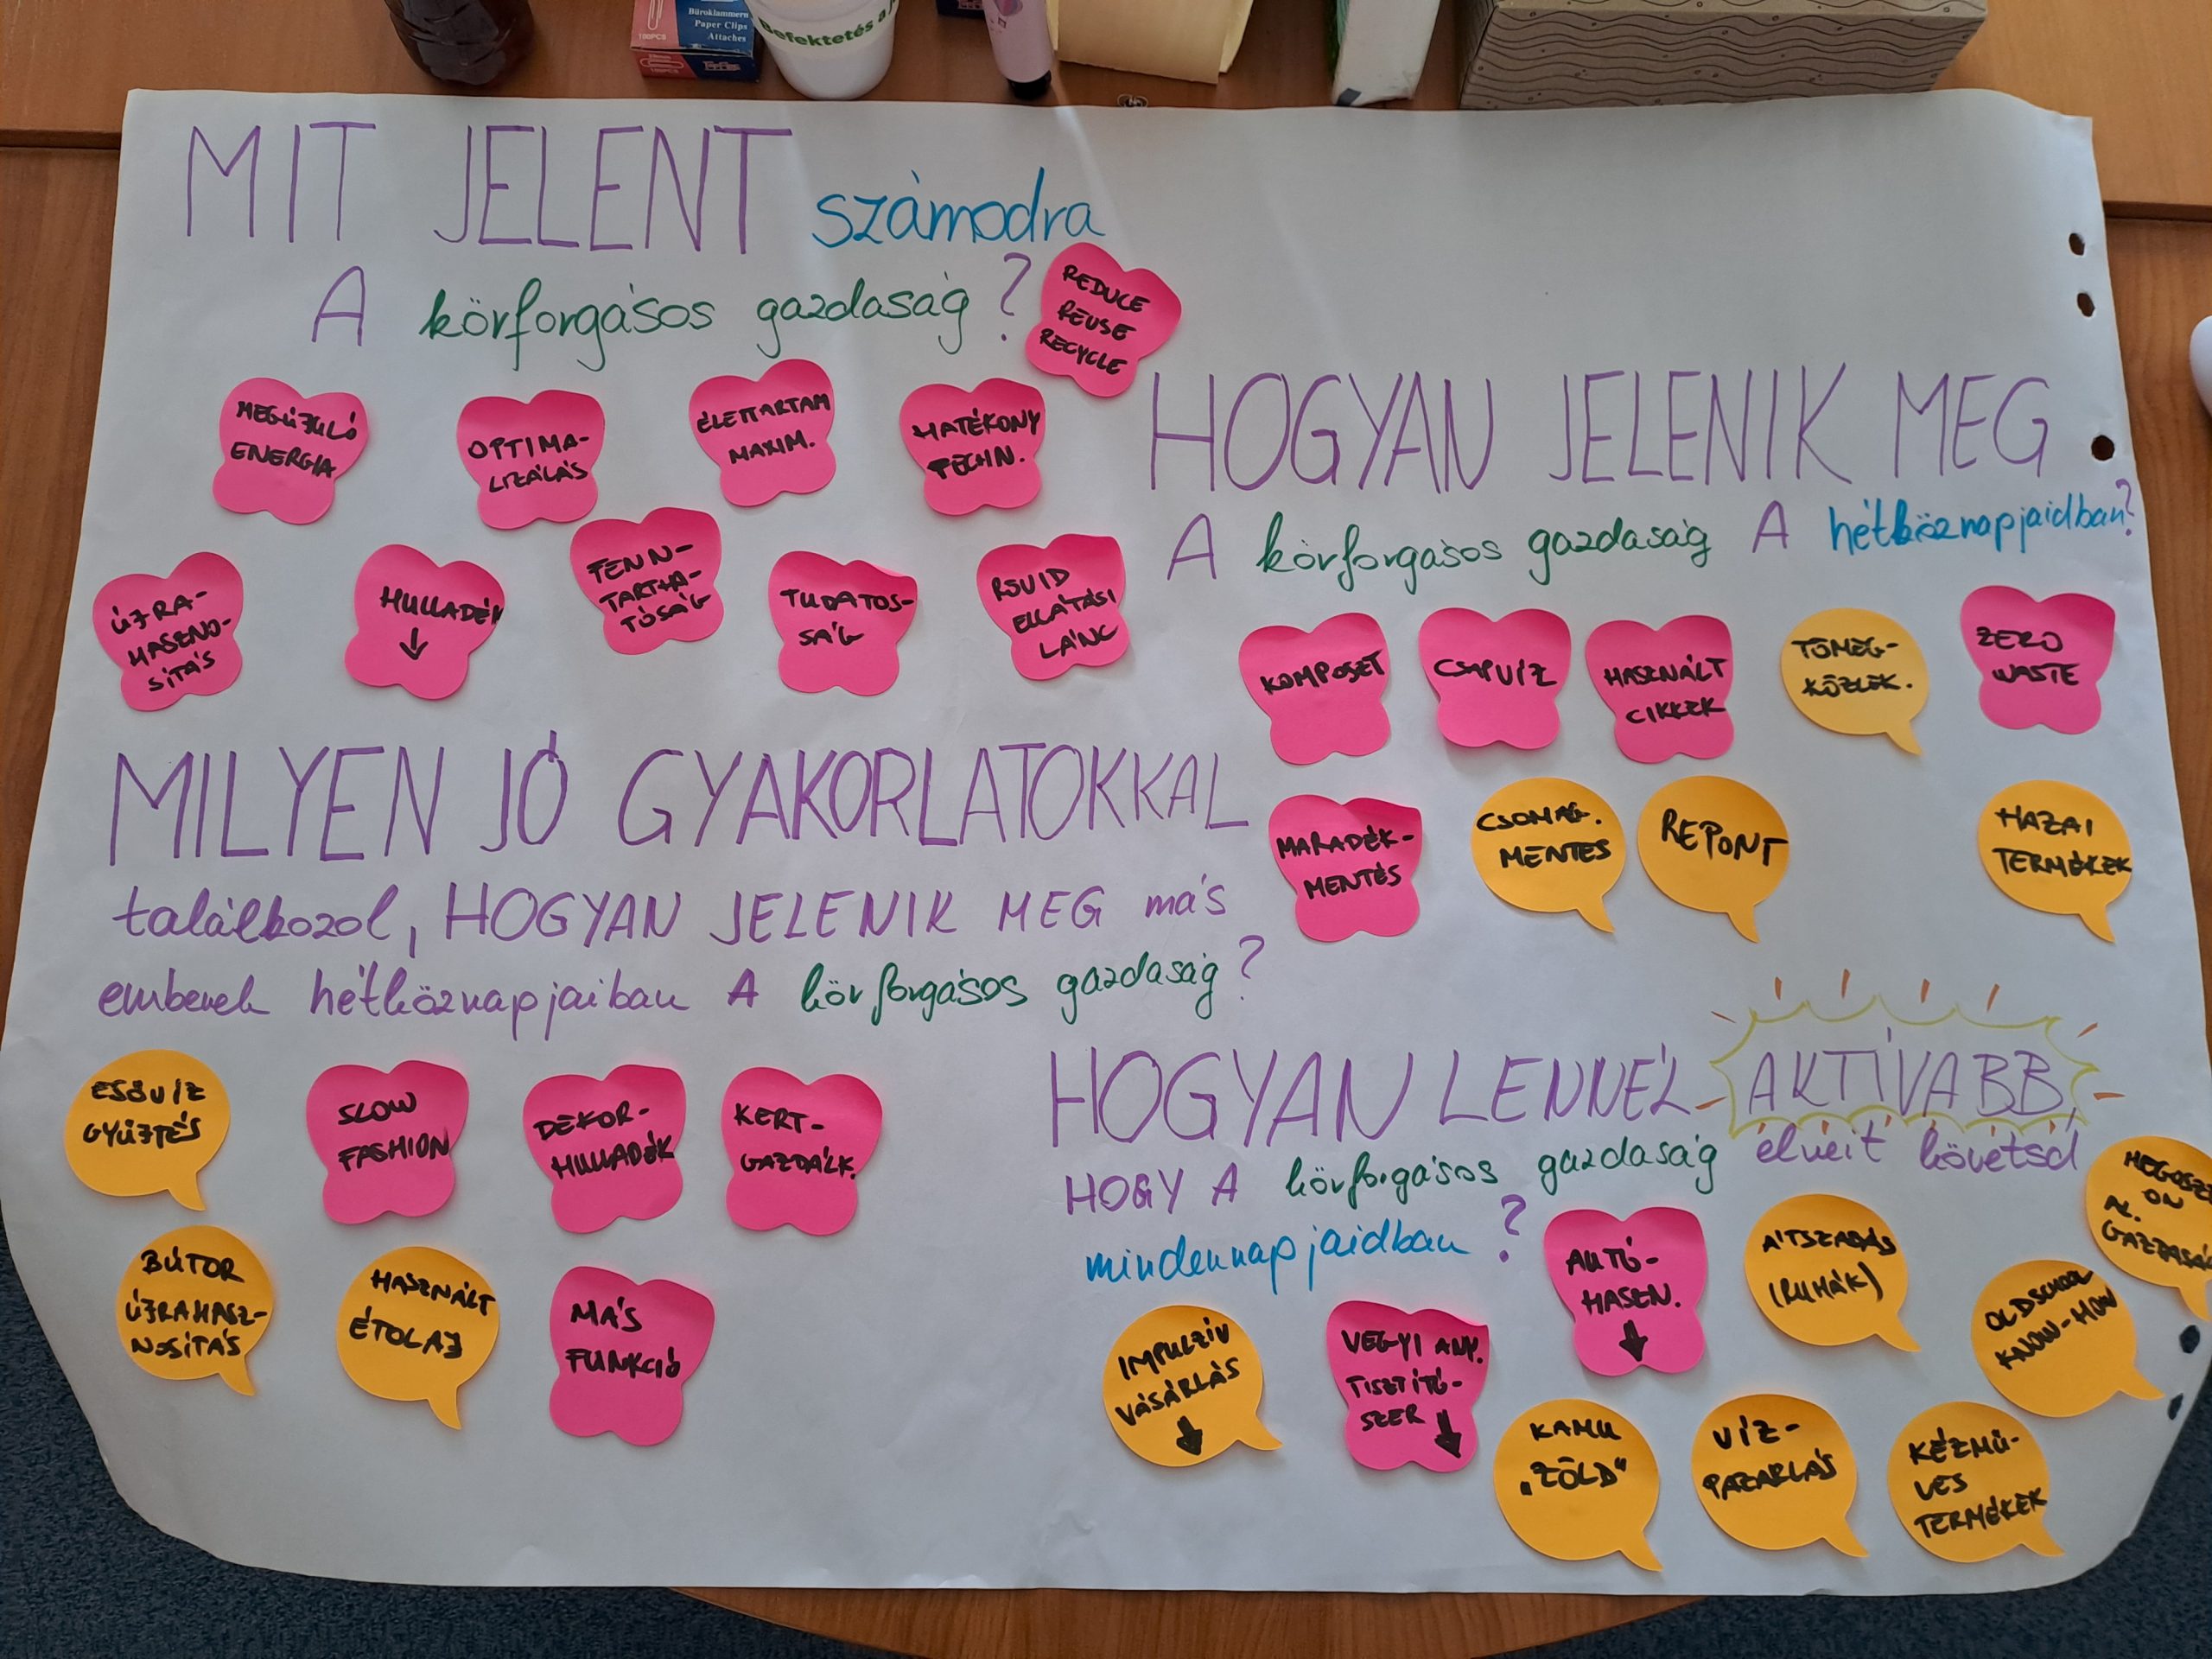 Büroklammern
Paper Clips
Attaches
100PCS
100PCS
Befektetés a
MIT JELENT számodra
A körforgásos gazdaság?
REDUCE
REUSE
RECYCLE
MEGÚJULÓ
ENERGIA
OPTIMA-
LIZÁLÁS
ÉLETTARTAM
MAXIM.
HATÉKONY
TECHN.
ÚJRA-
HASZNO-
SÍTÁS
HULLADÉK
↓
FENN-
TARTHA-
TÓSÁG
TUDATOS-
SÁG
RÖVID
ELLÁTÁSI
LÁNC
HOGYAN JELENIK MEG
A körforgásos gazdaság A hétköznapjaidban?
KOMPOSZT
CSAPVÍZ
HASZNÁLT
CIKKEK
TÖMEG-
KÖZLEK.
ZERO
WASTE
MARADÉK-
MENTÉS
CSOMAG.
MENTES
REPONT
HAZAI
TERMÉKEK
MILYEN JÓ GYAKORLATOKKAL
találkozol, HOGYAN JELENIK MEG más
emberek hétköznapjaiban A körforgásos gazdaság?
ESŐVÍZ
GYŰJTÉS
SLOW
FASHION
DEKOR-
HULLADÉK
KERT-
GAZDÁLK.
BÚTOR
ÚJRAHASZ-
NOSÍTÁS
HASZNÁLT
ÉTOLAJ
MÁS
FUNKCIÓ
HOGYAN LENNÉL AKTÍVABB,
HOGY A körforgásos gazdaság elveit kövesd
mindennapjaidban?
IMPULZÍV
VÁSÁRLÁS
↓
VEGYI ANY.
TISZTÍTÓ-
SZER ↓
AUTÓ-
HASZN.
↓
ÁTSZABÁS
(RUHÁK)
MEGOSZT
ON
A.
GAZDASÁG
OLDSCHOOL
KNOW-HOW
KAMU
„ZÖLD”
VÍZ-
PAZARLÁS
KÉZMŰ-
VES
TERMÉKEK